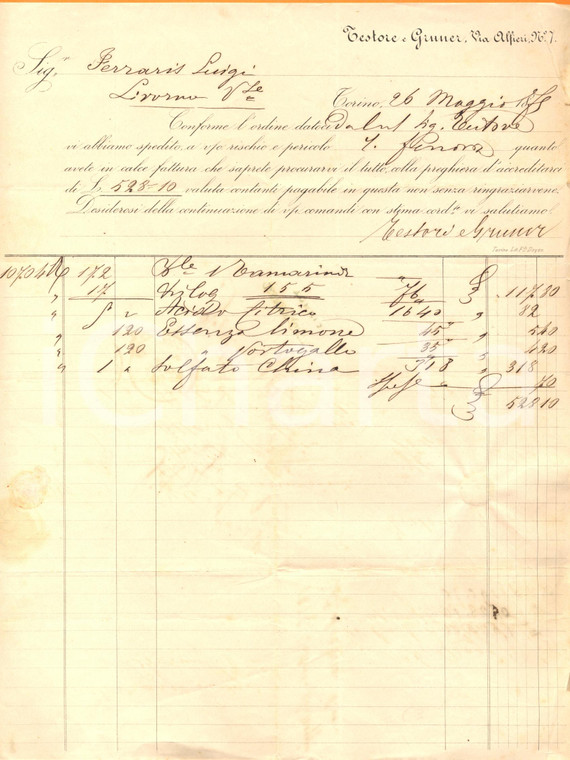 Testore e Gruner, Via Alfieri, Nº 7.
Sig.r Ferraris Luigi
Livorno Vle
Torino, 26 Maggio 18
Conforme l'ordine datoci dal
vi abbiamo spedito, a v/o rischio e pericolo quanto
avete in calce fattura che saprete procurarvi il tutto, colla preghiera d'accreditarci
di L. 528=10 valuta contanti pagabile in questa non senza ringraziarvene.
Desiderosi della continuazione di v/i comandi con stima cord.e vi salutiamo
Testore e Gruner
10704 172 Ble 1 Tamarindi
17 Kilog 155 76 117 80
5 Acido Citrico 16 40 82
120 Essenza limone 45 5 40
120 " Portogallo 35 4 20
1 " Solfato China 318 318
Spese 70
528 10